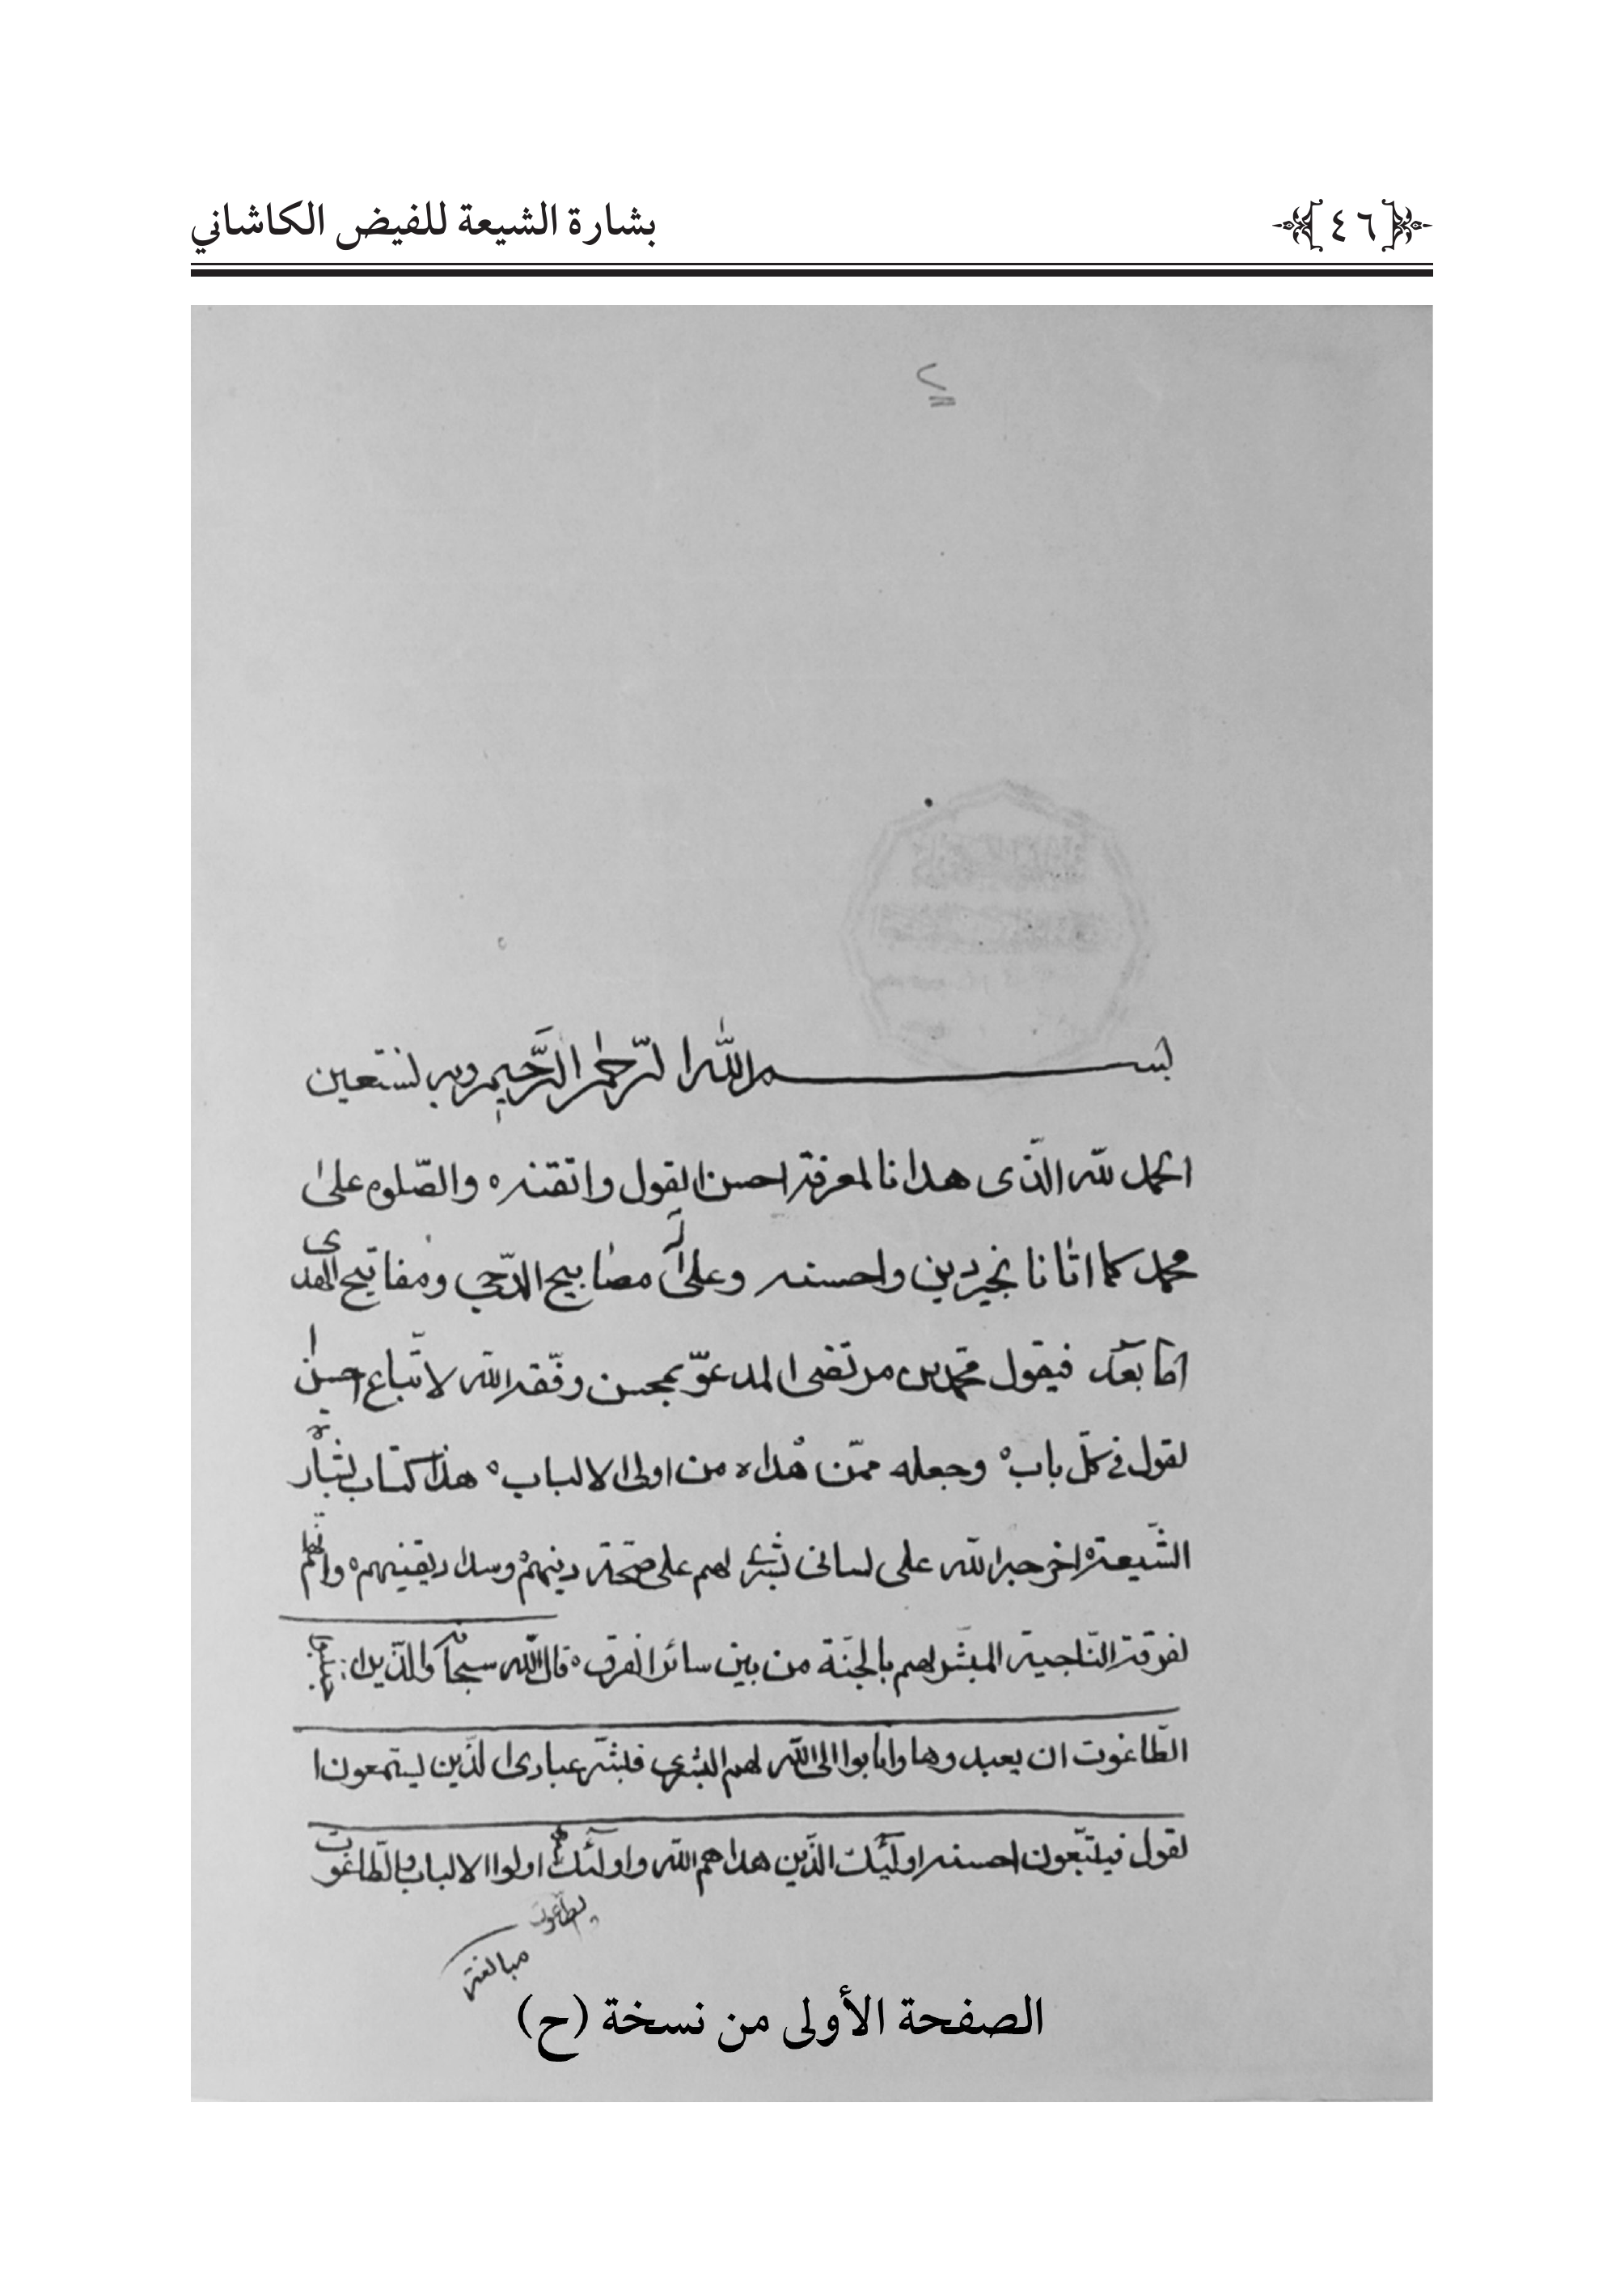 ٤٦
بشارة الشيعة للفيض الكاشاني
بسم الله الرحمن الرحيم وبه نستعين
الحمد لله الذى هدانا لمعرفة احسن القول واتقنه والصلوه على
محمد كما اتانا بخير دين واحسنه وعلى آله مصابيح الدجى ومفاتيح الهدى
اما بعد فيقول محمد بن مرتضى المدعو بمحسن وفقه الله لاتباع احسن ا
لقول فى كل باب وجعله ممن هداه من اولى الالباب هذا كتاب بشارة
الشيعة اخرجه الله على لسانى بشرى لهم على صحة دينهم وسداد يقينهم وانهم
لفرقة الناجية المبشر لهم بالجنة من بين سائر الفرق قال الله سبحانه والذين اجتنبوا
الطاغوت ان يعبدوها وانابوا الى الله لهم البشرى فبشر عبادى الذين يستمعون ا
لقول فيتبعون احسنه اولئك الذين هداهم الله واولئك هم اولوا الالباب والطاغوت
مبالغة
الصفحة الأولى من نسخة (ح)